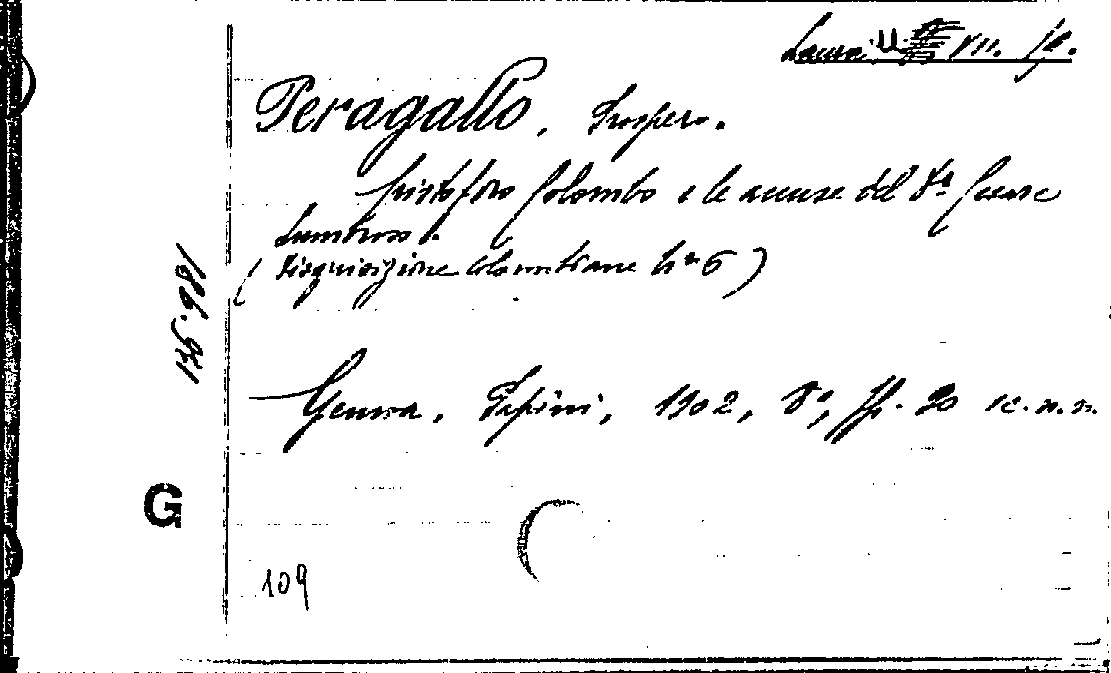 Laura U. VII. 16.
Peragallo, Prospero.
Cristoforo Colombo e le accuse del Dr. Cesare
Lumbroso.
(Disquisizione Colombiane nº 6)
Genova, Papini, 1902, 8º, pp. 20 n.n.
136.981
G
109